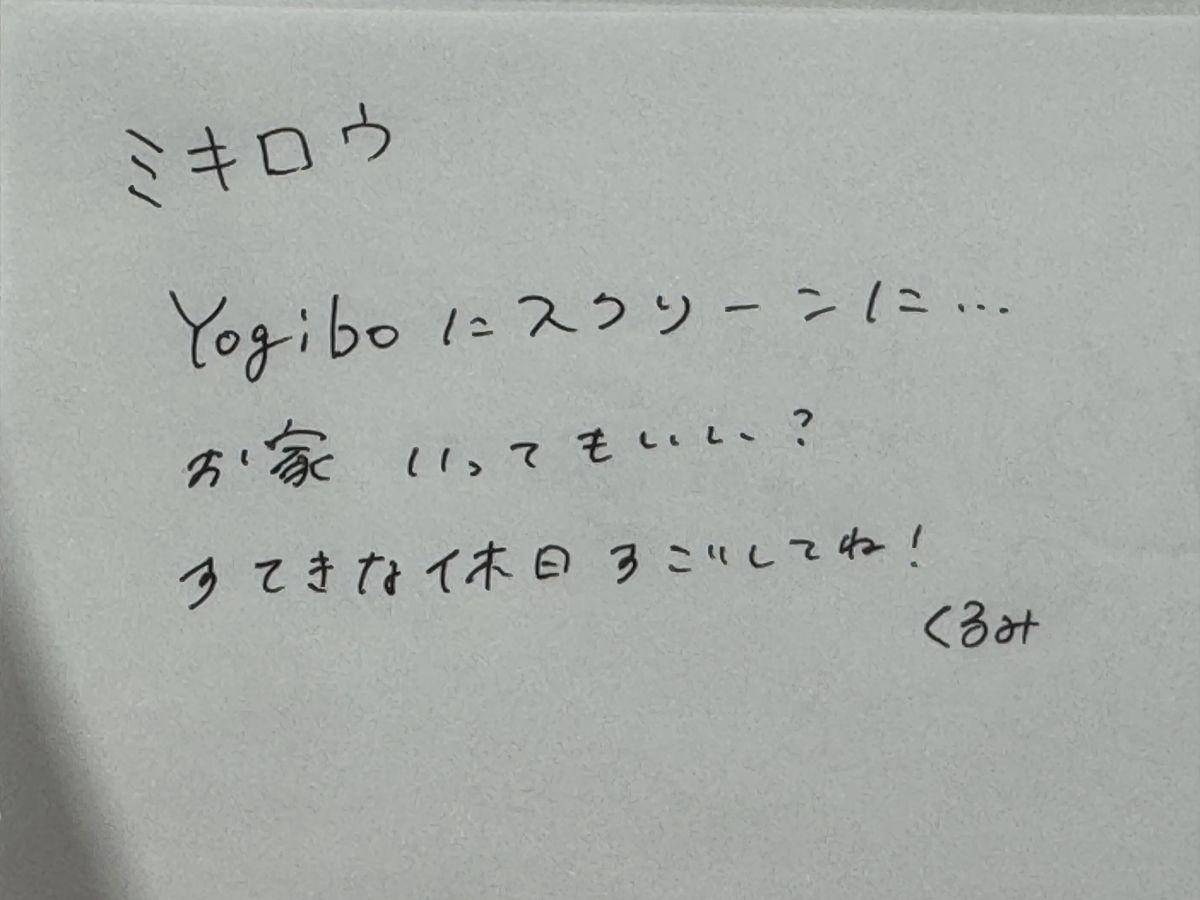 ミキロウ
Yogiboにスクリーンに…
お家 いってもいい?
すてきな休日すごしてね!
くるみ